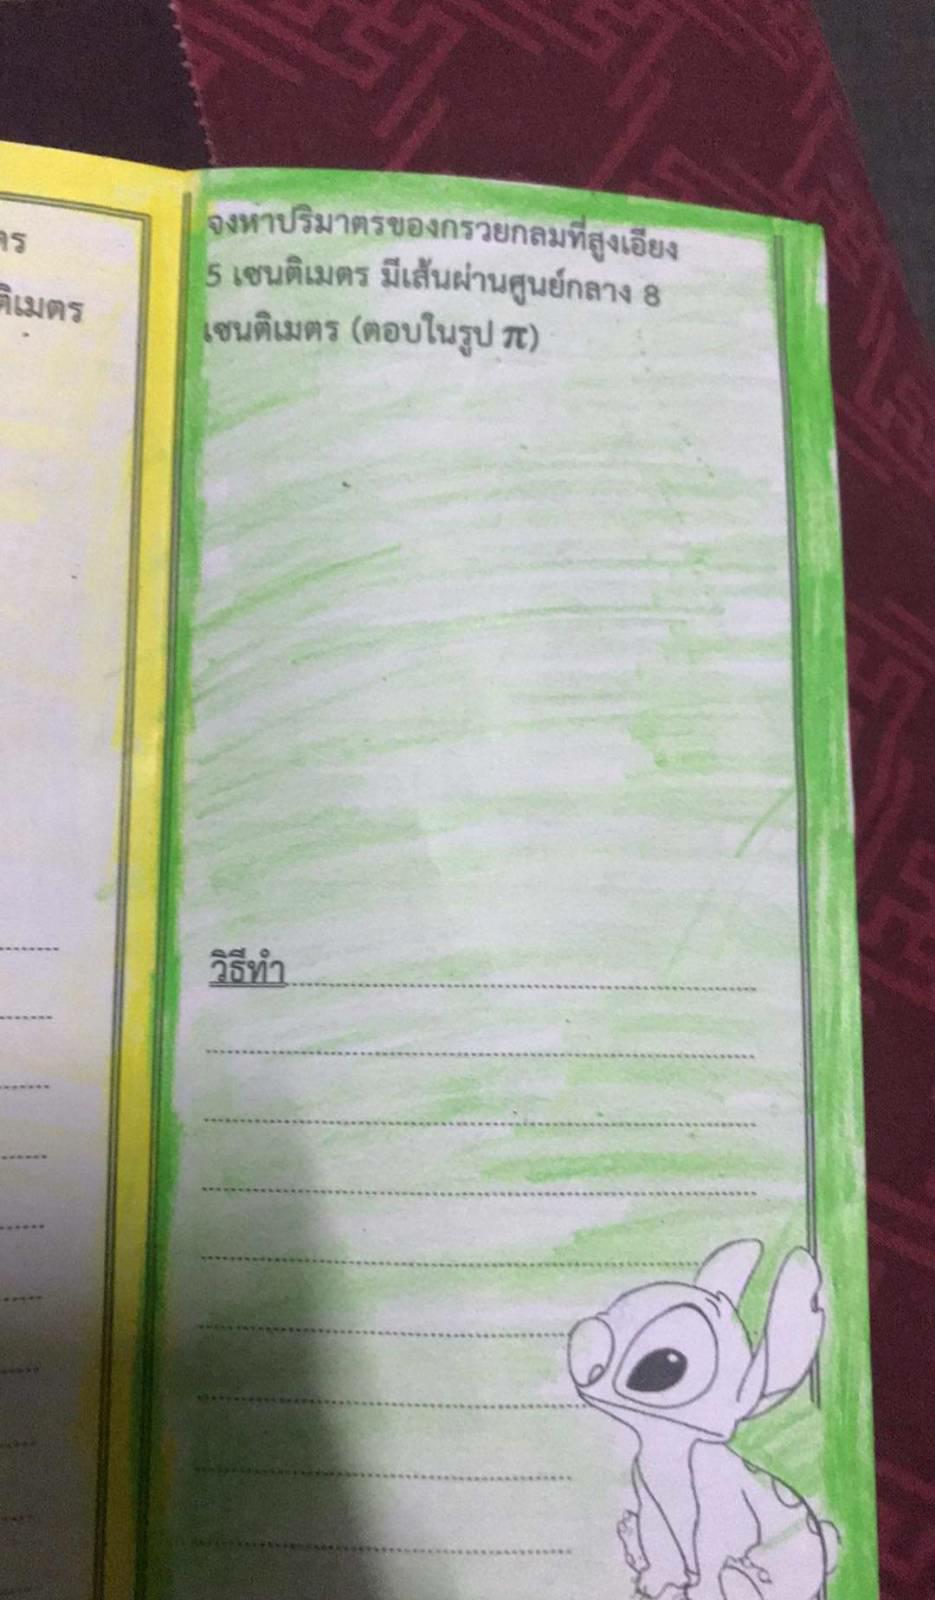 จงหาปริมาตรของกรวยกลมที่สูงเอียง
5 เซนติเมตร มีเส้นผ่านศูนย์กลาง 8
เซนติเมตร (ตอบในรูป π)
วิธีทำ